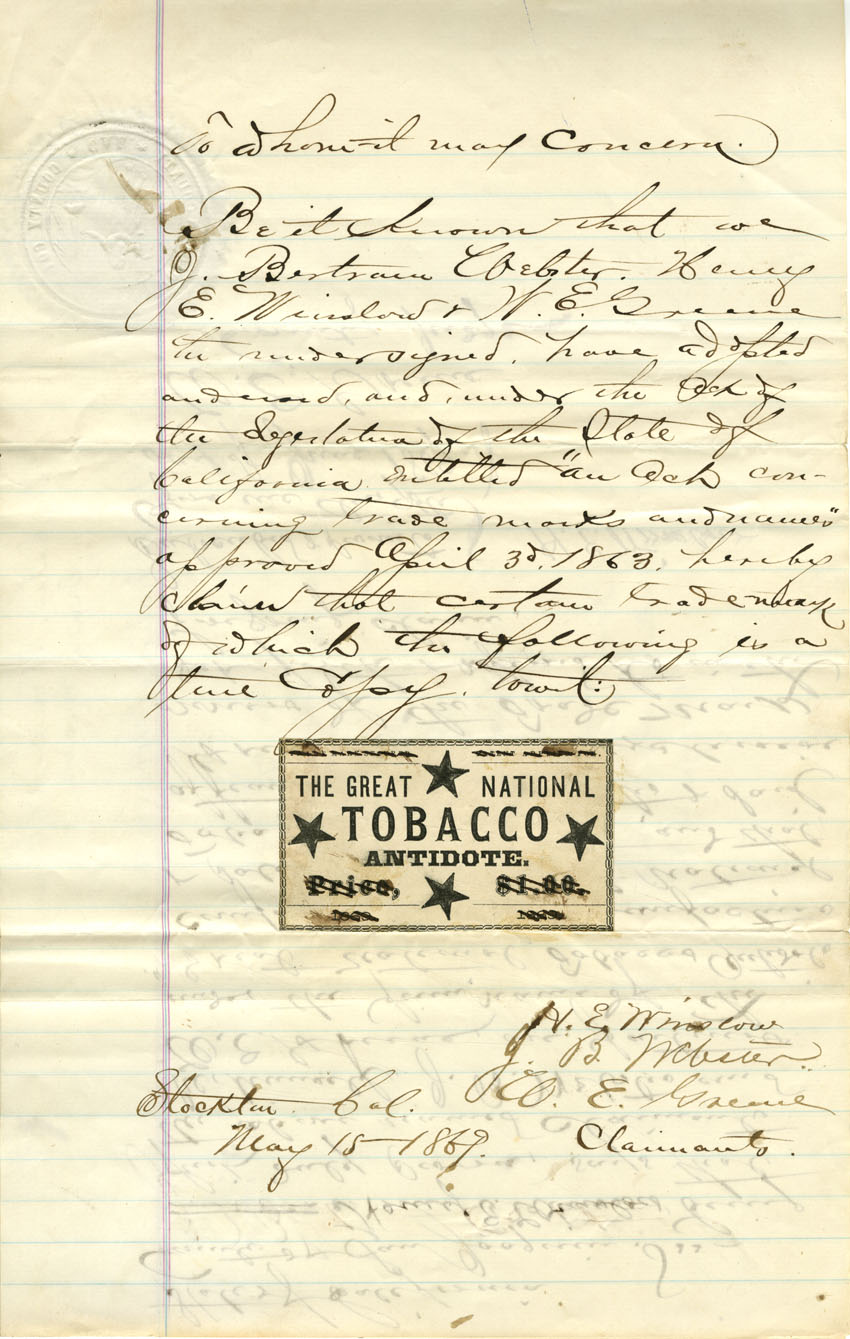 To whom it may concern.
Be it known that we
J. Bertram Webster. Henry
E. Winslow & W. E. Greene
the undersigned, have adopted
and used, and, under the Act of
the Legislature of the State of
California entitled "an Act con-
cerning trade marks and names"
approved April 3d, 1863, hereby
claim that certain trade mark
of which the following is a
true Copy. towit:
THE GREAT NATIONAL
TOBACCO
ANTIDOTE.
Price, $1.00.
H. E. Winslow
J. B. Webster.
W. E. Greene
Stockton Cal.
May 15 - 1869. Claimants.